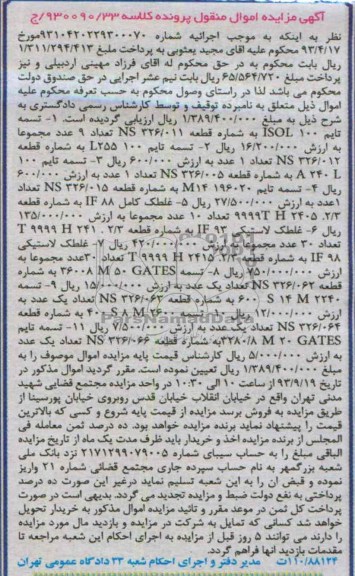 آگهی مزایده اموال منقول پرونده کلاسه ۹۳۰۰۹۰/۳۳/ج
نظر به اینکه به موجب اجرائیه شماره ۹۳۱۰۴۲۰۲۲۹۳۰۰۰۷۰ مورخ
۹۳/۴/۱۷ محکوم علیه آقای مجید یعثوبی به پرداخت مبلغ ۱/۳۱۱/۲۹۴/۴۱۳
ریال بابت محکوم به در حق محکوم له آقای فرزاد مهینی اردبیلی و نیز
پرداخت مبلغ ۶۵/۵۶۴/۷۲۰ ریال بابت نیم عشر اجرایی در حق صندوق دولت
محکوم می باشد لذا در راستای وصول محکوم به حسب تعرفه محکوم علیه
اموال ذیل متعلق به نامبرده توقیف و توسط کارشناس رسمی دادگستری به
شرح ذیل به مبلغ ۱/۳۸۹/۴۰۰/۰۰۰ ریال ارزیابی گردیده است. ۱- تسمه
تایم ۱۰۰ ISOL به شماره قطعه NS ۳۲۶/۰۱۱ تعداد ۹ عدد مجموعا
به ارزش ۱۶/۲۰۰/۰۰۰ ریال ۲- تسمه تایم ۱۰۰ L۲۵۵ به شماره قطعه
NS ۳۲۶/۰۱۲ تعداد ۱ عدد به ارزش ۶۰۰/۰۰۰ ریال ۳- تسمه تایم ۱۰۰
A ۲۴۰ L به شماره قطعه NS ۳۲۶/۰۰۵ تعداد ۱ عدد به ارزش ۶۰۰/۰۰۰
ریال ۴- تسمه تایم M۱۴ ۱۹۶۰۲۰ به شماره قطعه NS ۳۲۶/۰۱۵ تعداد
۱عدد به ارزش ۲۷/۵۰۰/۰۰۰ ریال ۵- غلطک کامل IF ۸۸ به شماره قطعه
۹۹۹۹T H ۲۴۰۵ ،۲/۳ تعداد ۱۰ عدد مجموعا به ارزش ۱۳۵/۰۰۰/۰۰۰
ریال ۶- غلطک لاستیکی IF ۹۳ به شماره قطعه ۲/۳ ، ۲۴۱ T ۹۹۹۹ H
تعداد ۳۰ عدد مجموعا به ارزش ۴۲۰/۰۰۰/۰۰۰ ریال ۷- غلطک لاستیکی
IF ۹۸ به شماره قطعه ۲/۳ ،۲۴۱۵ T ۹۹۹۹ H تعداد ۳۰عدد مجموعا به
ارزش ۷۵۰/۰۰۰/۰۰۰ ریال ۸- تسمه ۳۶۰۰۸ M ۵۰ GATES به شماره
قطعه NS ۳۲۶/۰۶۲ تعداد یک عدد به ارزش ۱۵/۰۰۰/۰۰۰ ریال ۹- تسمه
۶۰۰ S ۱۴ M ۲۲۴۰ به شماره قطعه NS ۳۲۶/۰۶۳ تعداد یک عدد به
ارزش ۱۲/۰۰۰/۰۰۰ ریال ۱۰- تسمه تایم ۴۰۰ S ۸ M به شماره قطعه
NS ۳۲۶/۰۶۴ تعداد یک عدد به ارزش ۷/۵۰۰/۰۰۰ ریال ۱۱- تسمه تایم
۳۲۸۰/۸ M ۲۰ GATES به شماره قطعه NS ۳۲۶/۰۶۶ تعداد یک عدد
به ارزش ۵/۰۰۰/۰۰۰ ریال کارشناس قیمت پایه مزایده اموال موصوف را به
مبلغ ۱/۳۸۹/۴۰۰/۰۰۰ ریال تعیین نموده است. مقرر گردید اموال مذکور در
تاریخ ۹۳/۹/۱۹ از ساعت ۱۰ الی ۱۰:۳۰ در واحد مزایده مجتمع قضایی شهید
مدنی تهران واقع در خیابان انقلاب خیابان قدس روبروی خیابان پورسینا از
طریق مزایده به فروش برسد مزایده از قیمت پایه شروع و کسی که بالاترین
قیمت را پیشنهاد نماید برنده مزایده خواهد بود. ده درصد ثمن معامله فی
المجلس از برنده مزایده اخذ و خریدار باید ظرف مدت یک ماه از تاریخ مزایده
الباقی مبلغ را به حساب سیبای شماره ۲۱۷۱۲۹۹۰۷۹۰۰۵ نزد بانک ملی
شعبه بزرگمهر به نام حساب سپرده جاری مجتمع قضائی شماره ۲۱ واریز
نموده و قبض آن را به این شعبه تسلیم نماید درغیر این صورت ده درصد
پرداختی به نفع دولت ضبط و مزایده تجدید می گردد. بدیهی است در صورت
پرداخت کل ثمن در موعد مقرر و تائید مزایده اموال مذکور به خریدار تحویل
خواهد شد کسانی که تمایل به شرکت در مزایده و بازدید مال مورد مزایده
را دارند می توانند ۵ روز قبل از مزایده به اجرای احکام این شعبه مراجعه تا
مقدمات بازدید آنها فراهم گردد.
۱۱۰/۸۸۱۲۴ت مدیر دفتر و اجرای احکام شعبه ۳۳ دادگاه عمومی تهران